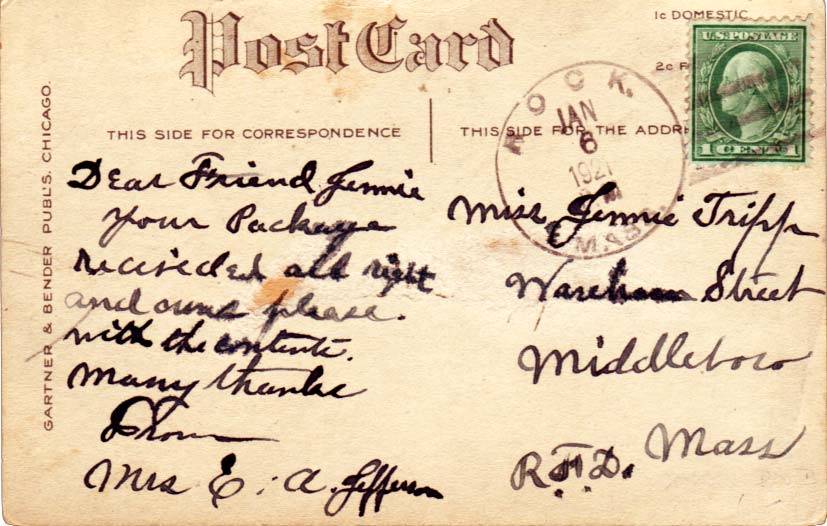 Post Card
1c DOMESTIC
2c F
U.S. POSTAGE
1 CENT 1
ROCK.
JAN
6
1921
M
MASS.
THIS SIDE FOR CORRESPONDENCE
THIS SIDE FOR THE ADDR
GARTNER & BENDER PUBL'S. CHICAGO.
Dear Friend Jennie
your Package
recieded all right
and please.
with the contents.
Many thanks
From
Mrs E. A. Jefferson
Miss Jennie Tripp
Wareham Street
Middleboro
Mass
R.F.D.